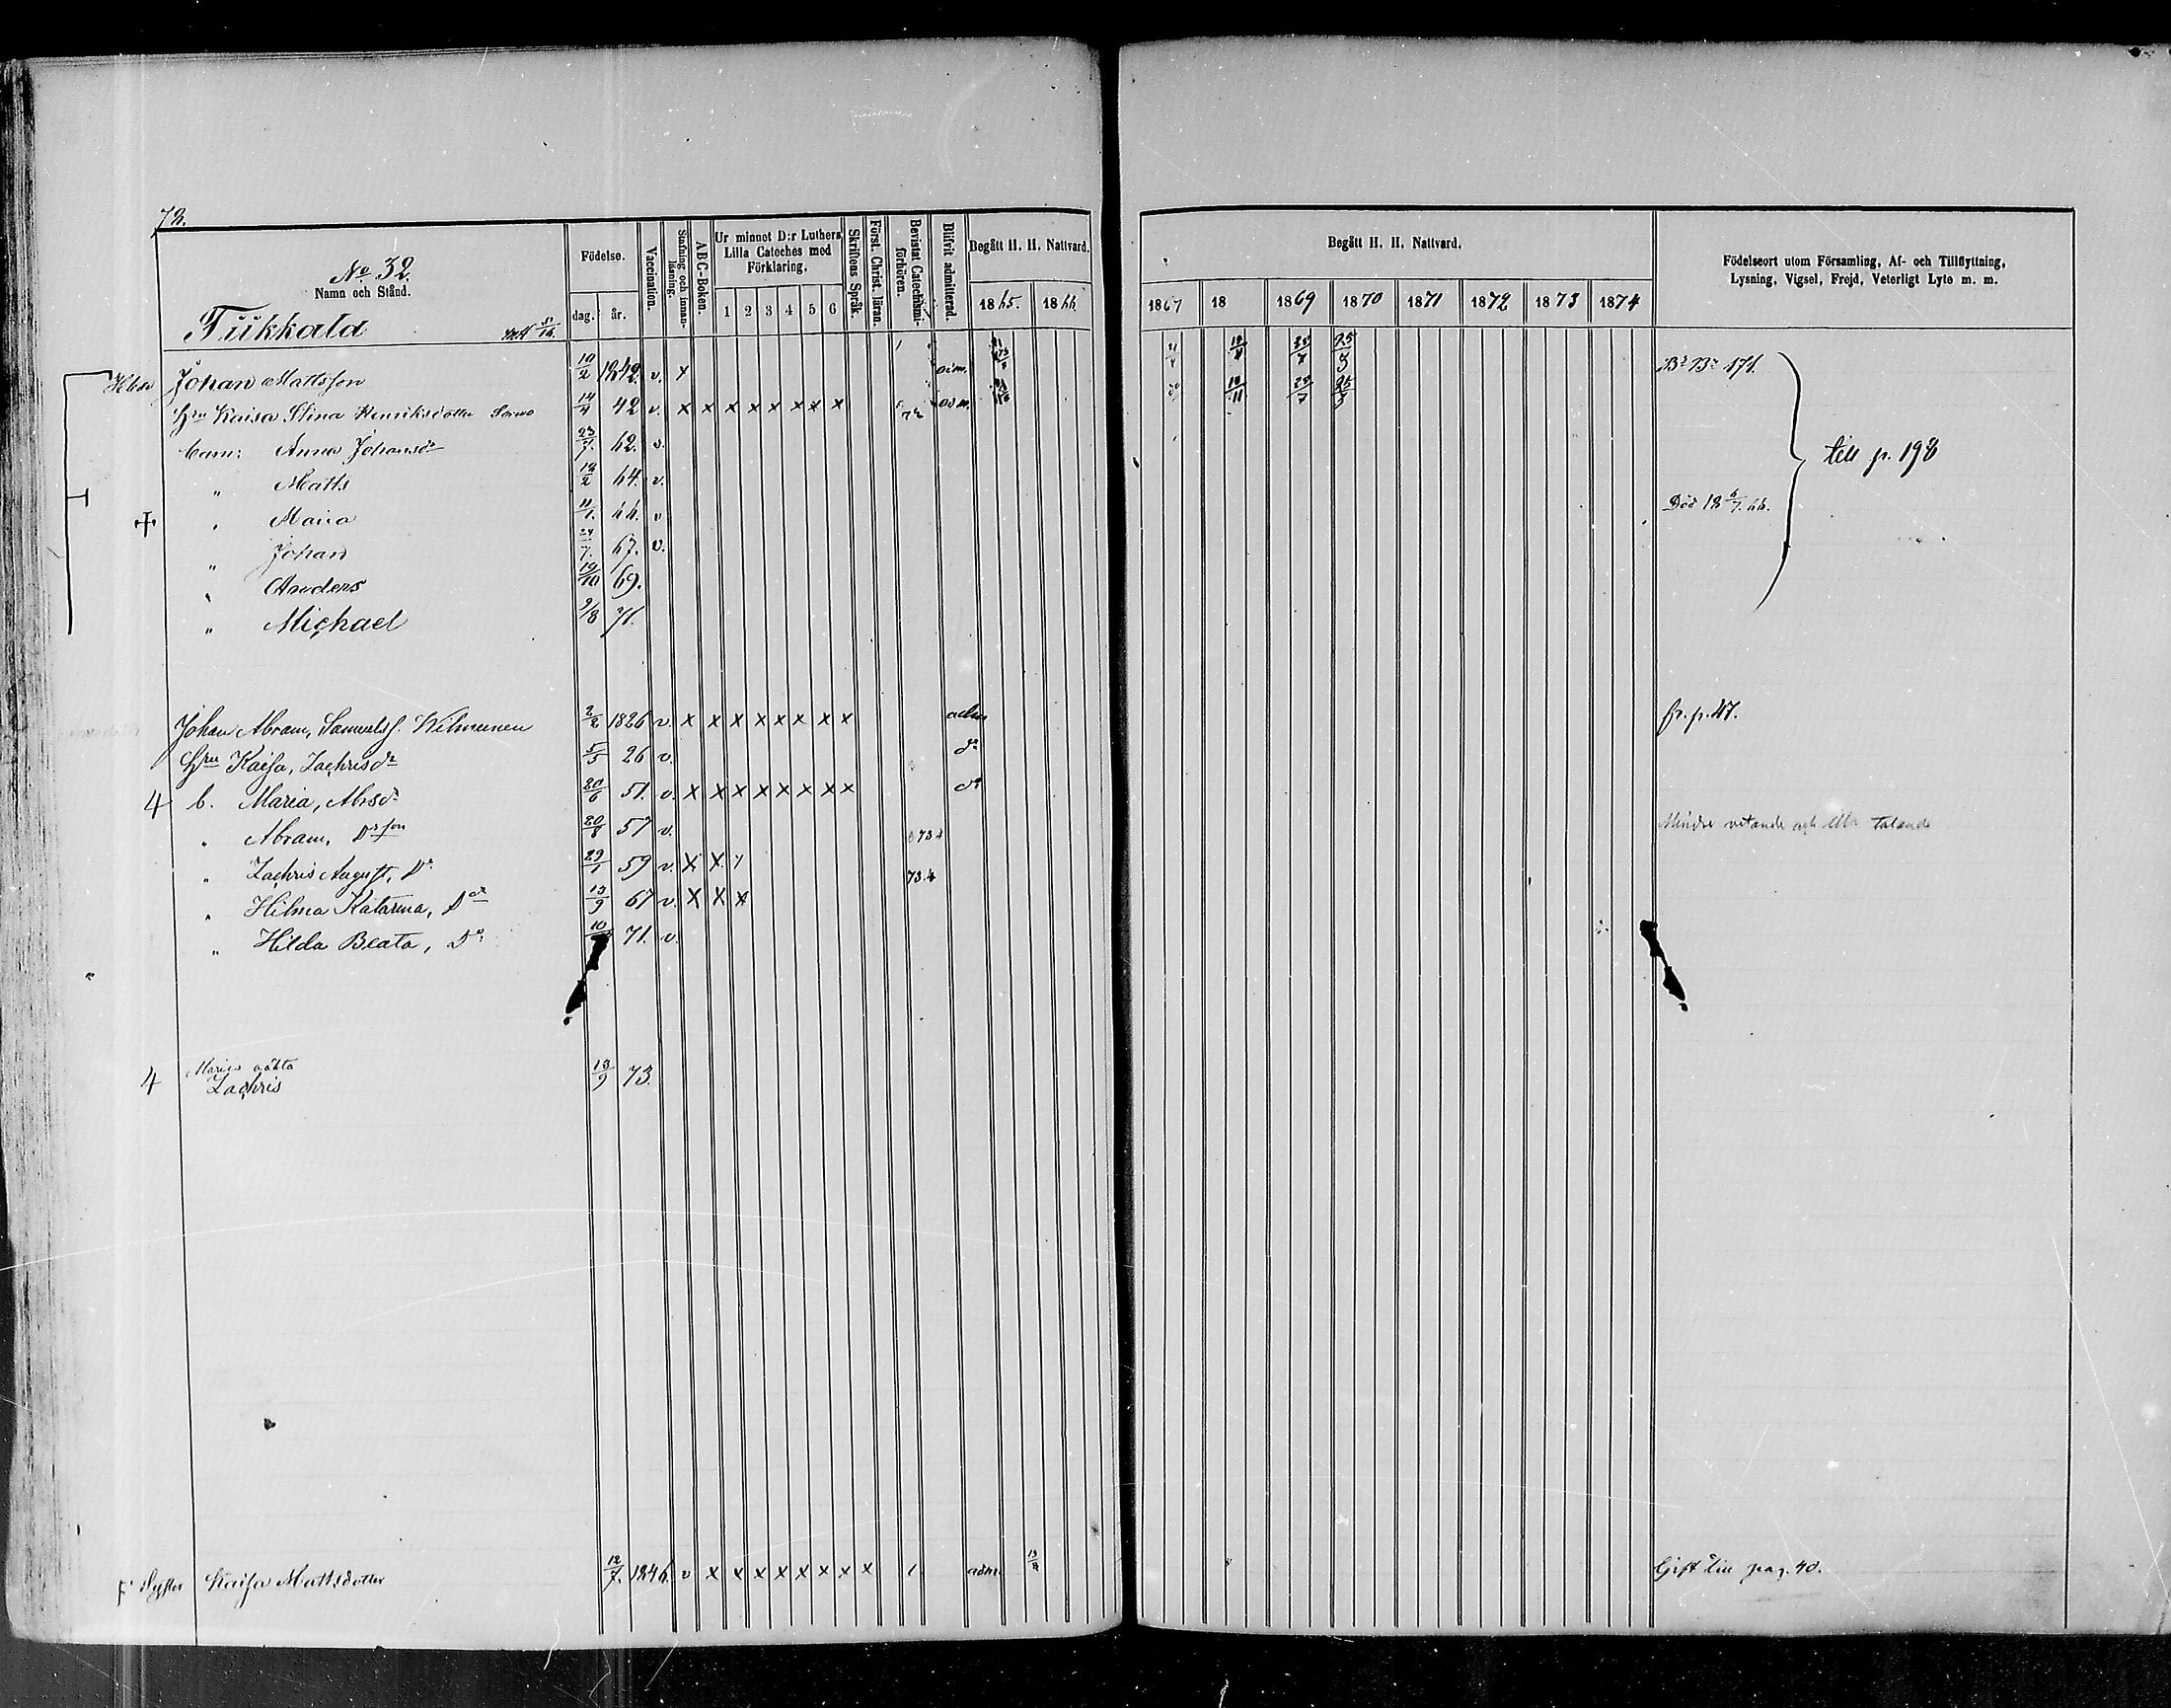 78.
No 32.
Namn och Stånd.
Födelse.
dag. år.
Vaccination.
Stafning och innanläsning.
ABC-Boken.
Ur minnet D:r Luthers Lilla Cateches med Förklaring.
1 2 3 4 5 6
Skriftens Språk.
Först. Christ. läran.
Bevistat Catechismi-förhören.
Blifvit admitterad.
Begått H. H. Nattvard.
1865. 1866
Begått H. H. Nattvard.
1867 18 1869 1870 1871 1872 1873 1874
Födelseort utom Församling, Af- och Tillflyttning, Lysning, Vigsel, Frejd, Veterligt Lyte m. m.
Tukkala
Johan Mattsson 10/2 1842. v. x adm. 25/5 171.
Hru Kaisa Stina Henriksdotter Sorvo 14/4 42 v. x x x x x x x x adm. 25/5
barn: Anna Johansdr 23/7. 62. v. till p. 198
" Matts 19/2 64. v.
" Maria 11/1. 66. v Död 18 6/7. 66.
" Johan 24/7. 67. v.
" Anders 19/10 69.
" Michael 9/8 71.
Johan Abram, Samuelss. Wilmunen 2/2 1826 v. x x x x x x x x adm fr. p. 47.
Hru Kaisa, Zachrisdr 5/5 26 v. do
4 b. Maria, Abrsdr 20/6 51. v. x x x x x x x x do
" Abram, Drson 20/8 57 v. 73 Mindre vetande och illa talande
" Zachris August, Do 29/1 59 v. x x 73.
" Hilma Katarina, Ddr 13/9 67 v. x x x
" Hilda Beata, Do 10 71. v.
4 Marias oäkta
Zachris 13/9 73.
Syster Kaisa Mattsdotter 12/7. 1846. v x x x x x x x x 1 adm. Gift till pag. 40.